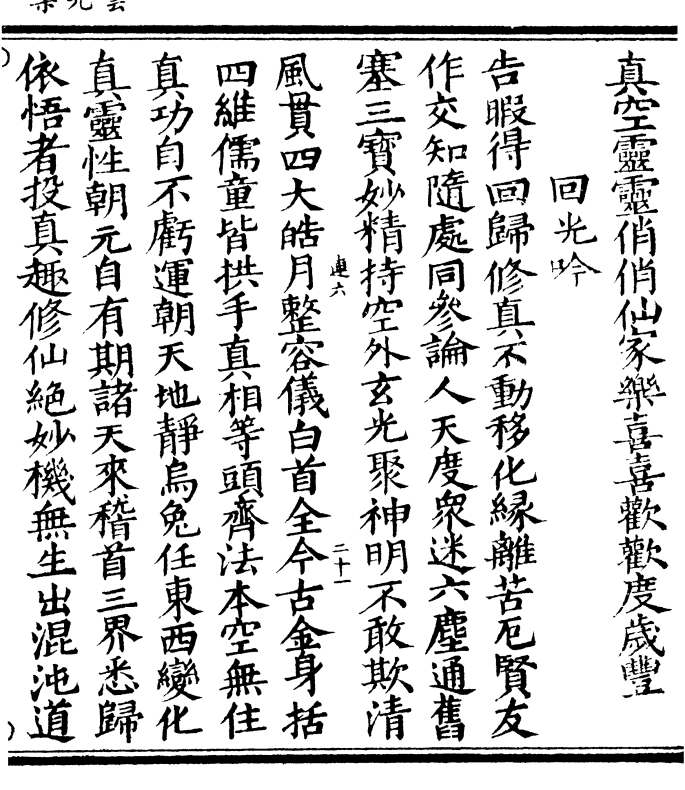 真空靈靈俏俏仙家樂喜喜歡歡度歲豐
回光吟
告暇得回歸修真不動移化緣離苦厄賢友
作交知隨處同參論人天度眾迷六塵通舊
塞三寶妙精持空外玄光聚神明不敢欺清
風貫四大皓月整容儀白首全今古金身括
連六
二十一
四維儒童皆拱手真相等頭齊法本空無住
真功自不虧運朝天地靜烏兔任東西變化
真靈性朝元自有期諸天來稽首三界悉歸
依悟者投真趣修仙絕妙機無生出混沌道